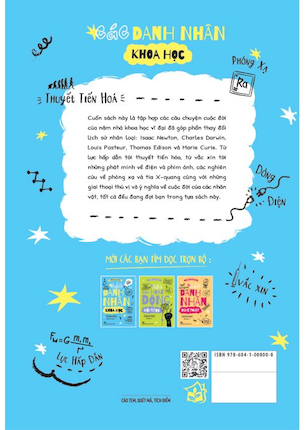 CÁC DANH NHÂN
KHOA HỌC
PHÓNG XẠ
Ra
THUYẾT TIẾN HOÁ
Cuốn sách này là tập hợp các câu chuyện cuộc đời
của năm nhà khoa học vĩ đại đã góp phần thay đổi
lịch sử nhân loại: Isaac Newton, Charles Darwin,
Louis Pasteur, Thomas Edison và Marie Curie. Từ
lực hấp dẫn tới thuyết tiến hóa, từ vắc xin tới
những phát minh về điện và phim ảnh, các nghiên
cứu về phóng xạ và tia X-quang cùng với những
giai thoại thú vị và ý nghĩa về cuộc đời của các nhân
vật, tất cả đều đang đợi bạn trong tựa sách này.
DÒNG
ĐIỆN
MỜI CÁC BẠN TÌM ĐỌC TRỌN BỘ:
DANH
NHÂN
KHOA HỌC
DANH
NHÂN
VẮC XIN
LỰC HẤP DẪN
ISBN 978-604-1-00000-0
CÀO TEM, QUÉT MÃ, TÍCH ĐIỂM